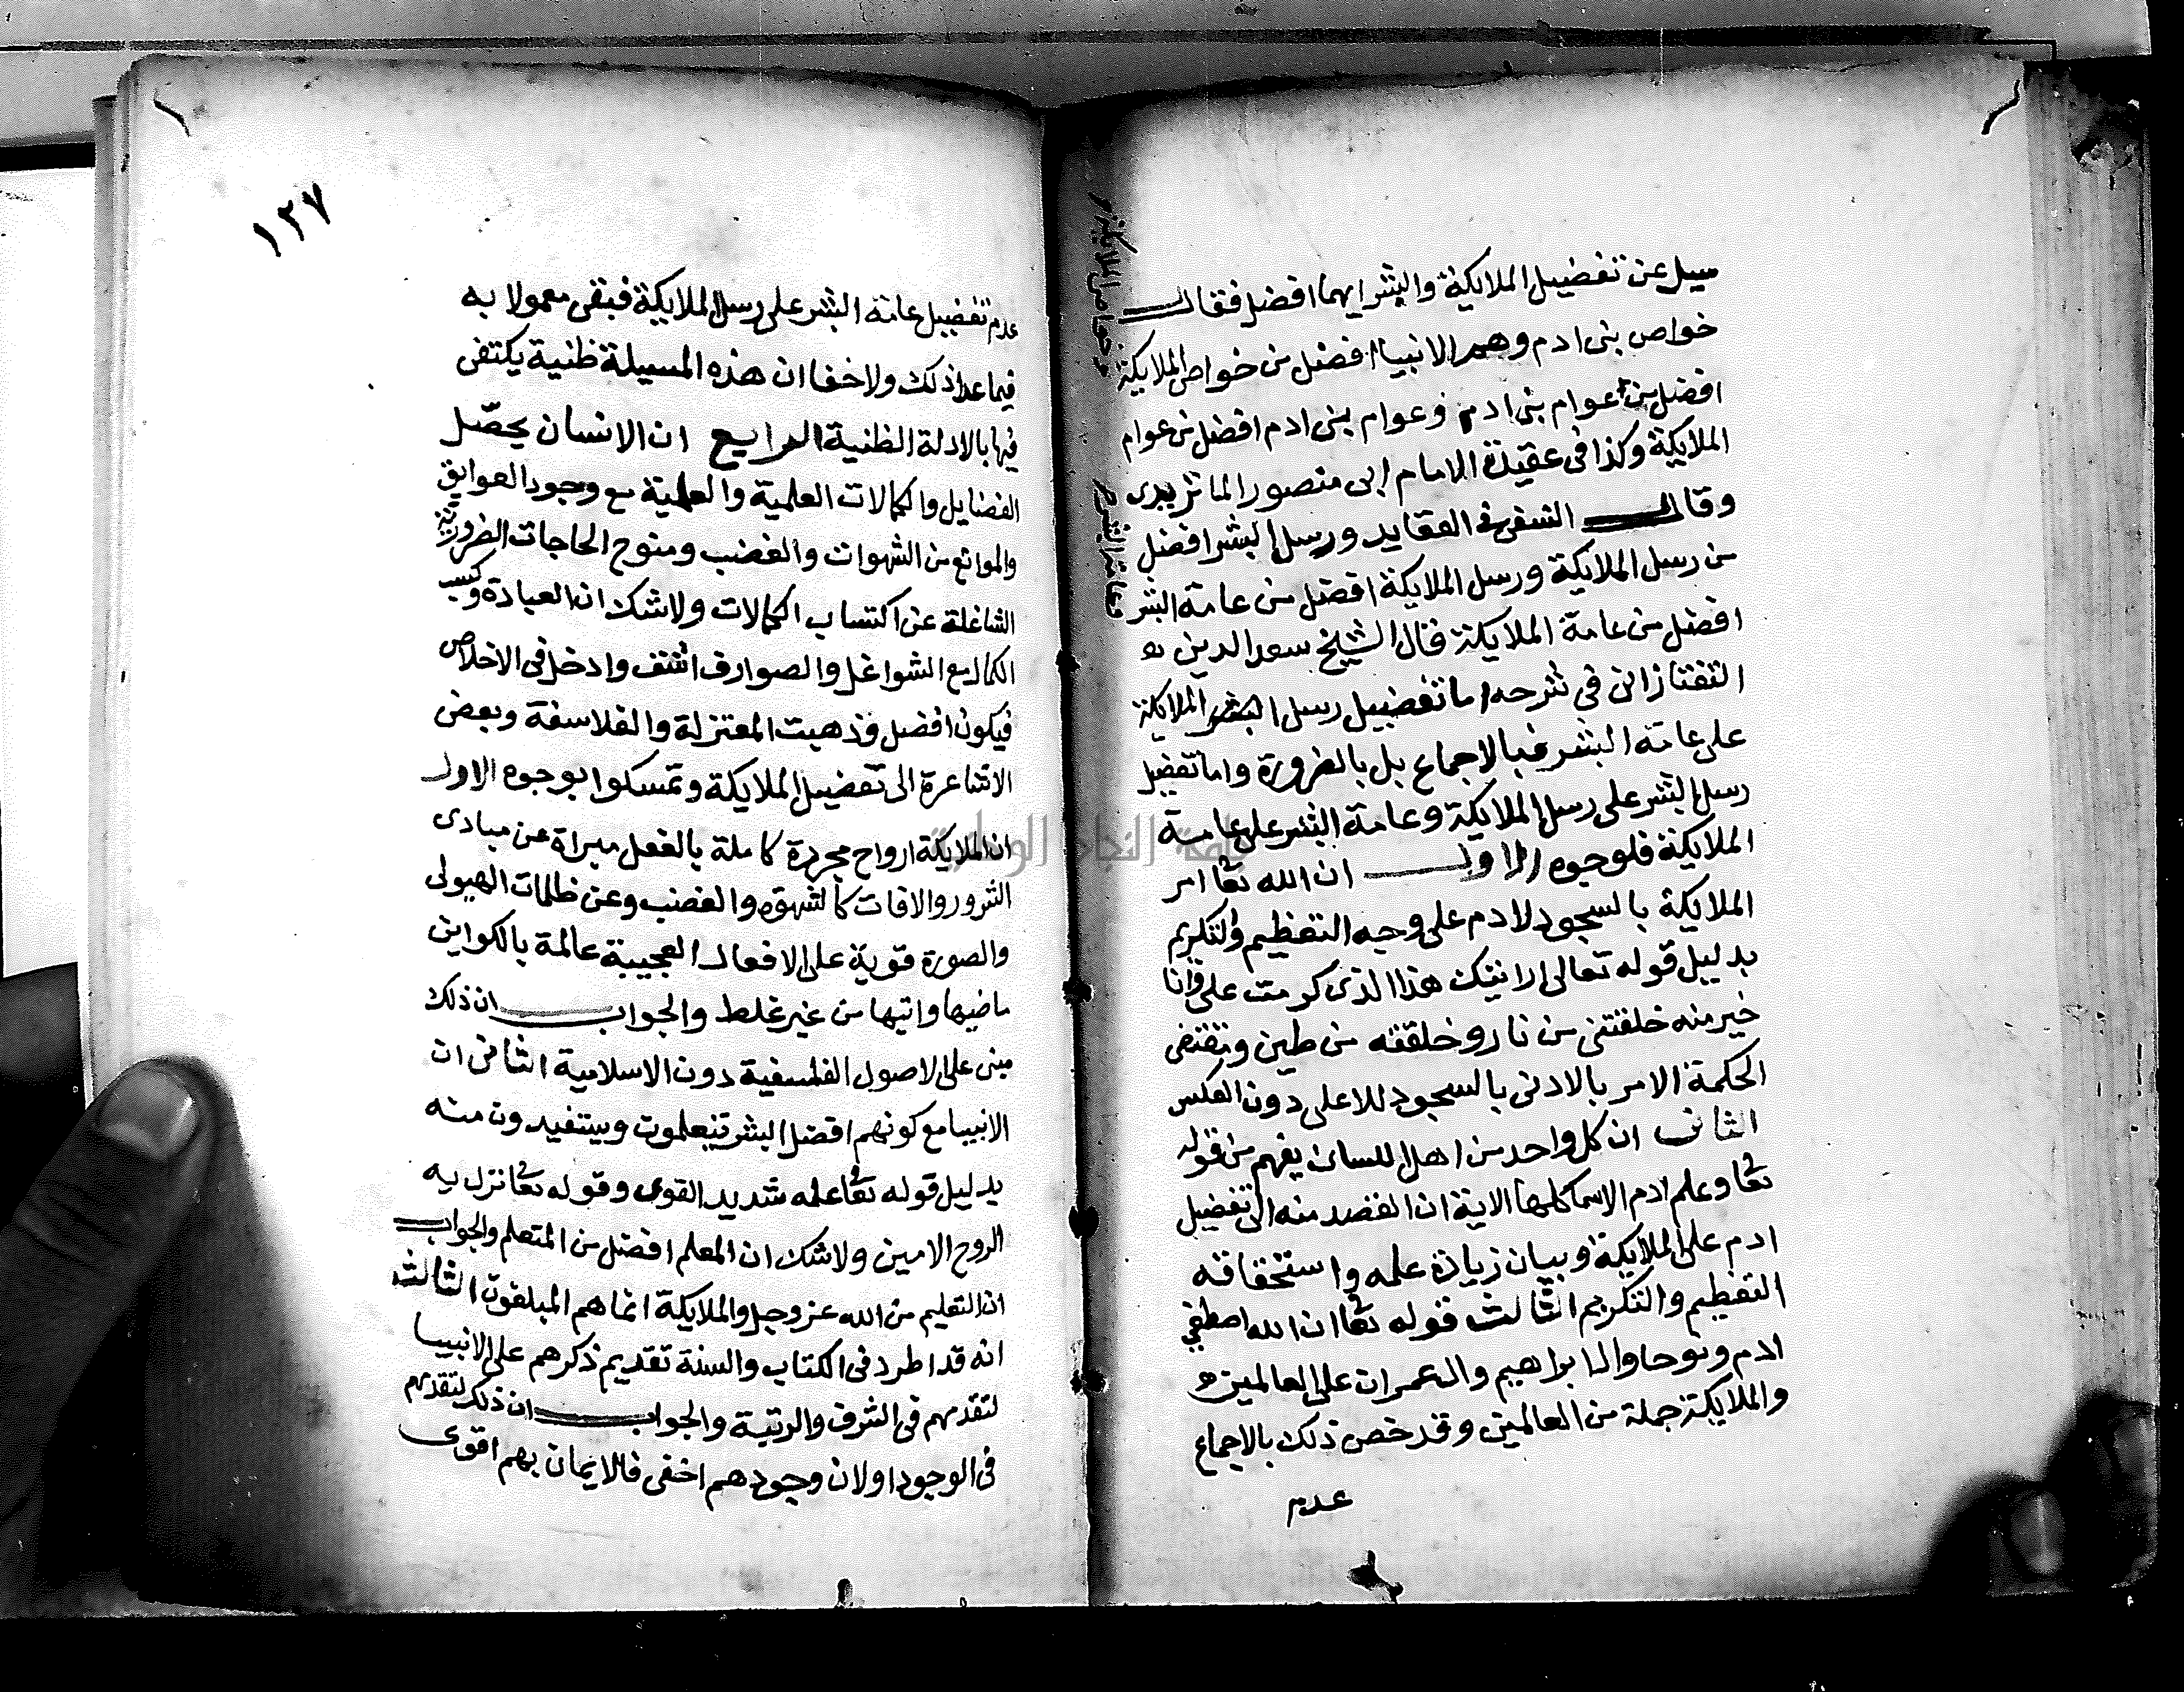 سيل عن تفضيل الملايكة والبشر ايهما افضل فقال
خواص بنى ادم وهم الانبيا افضل من خواص الملايكة
وخواص الملايكة
افضل من عوام بنى ادم وعوام بنى ادم افضل من عوام
الملايكة وكذا فى عقيدة الامام ابى منصور الماتريدى
وقال النسفى فى العقايد ورسل البشر افضل
من رسل الملايكة ورسل الملايكة افضل من عامة البشر
وعامة البشر
افضل من عامة الملايكة قال الشيخ سعد الدين
التفتازانى فى شرحه اما تفضيل رسل الملايكة
على عامة البشر فبالاجماع بل بالضرورة واما تفضيل
رسل البشر على رسل الملايكة وعامة البشر على عامة
الملايكة فلوجوه الاول ان الله تعا امر
الملايكة بالسجود لادم على وجه التعظيم والتكريم
بدليل قوله تعالى ارايتك هذا الذى كرمت على وانا
خير منه خلقتنى من نار وخلقته من طين وتقتضى
الحكمة الامر بالادنى بالسجود للاعلى دون العكس
الثانى ان كل واحد من اهل اللسان يفهم من قوله
تعا وعلم ادم الاسما كلها الاية ان القصد منه الى تفضيل
ادم على الملايكة وبيان زيادة علمه واستحقاقه
التعظيم والتكريم الثالث قوله تعا ان الله اصطفى
ادم ونوحا وال ابراهيم وال عمران على العالمين
والملايكة جملة من العالمين وقد خص ذلك بالاجماع
عدم
١٢٧
عدم تفضيل عامة البشر على رسل الملايكة فبقى معمولا به
فيما عدا ذلك ولا خفا ان هذه المسيلة ظنية يكتفى
فيها بالادلة الظنية الرابع ان الانسان يحصّل
الفضايل والكمالات العلمية والعملية مع وجود العوايق
والموانع من الشهوات والغضب وسنوح الحاجات الضرورية
الشاغلة عن اكتساب الكمالات ولا شك ان العبادة وكسب
الكمال مع الشواغل والصوارف اشق وادخل فى الاخلاص
فيكون افضل وذهبت المعتزلة والفلاسفة وبعض
الاشاعرة الى تفضيل الملايكة وتمسكوا بوجوه الاول
ان الملايكة ارواح مجردة كاملة بالفعل مبراة عن مبادى
الشرور والافات كالشهوة والغضب وعن ظلمات الهيولى
والصورة قوية على الافعال العجيبة عالمة بالكواين
ماضيها واتيها من غير غلط والجواب ان ذلك
مبنى على الاصول الفلسفية دون الاسلامية الثانى ان
الانبيا مع كونهم افضل البشر يتعلمون ويستفيدون منه
بدليل قوله تعا علمه شديد القوى وقوله تعا نزل به
الروح الامين ولا شك ان المعلم افضل من المتعلم والجواب
ان التعليم من الله عز وجل والملايكة انما هم المبلغون الثالث
انه قد اطرد فى الكتاب والسنة تقديم ذكرهم على الانبيا
لتقدمهم فى الشرف والرتبة والجواب ان ذلك لتقدمهم
فى الوجود او لان وجودهم اخفى فالايمان بهم اقوى